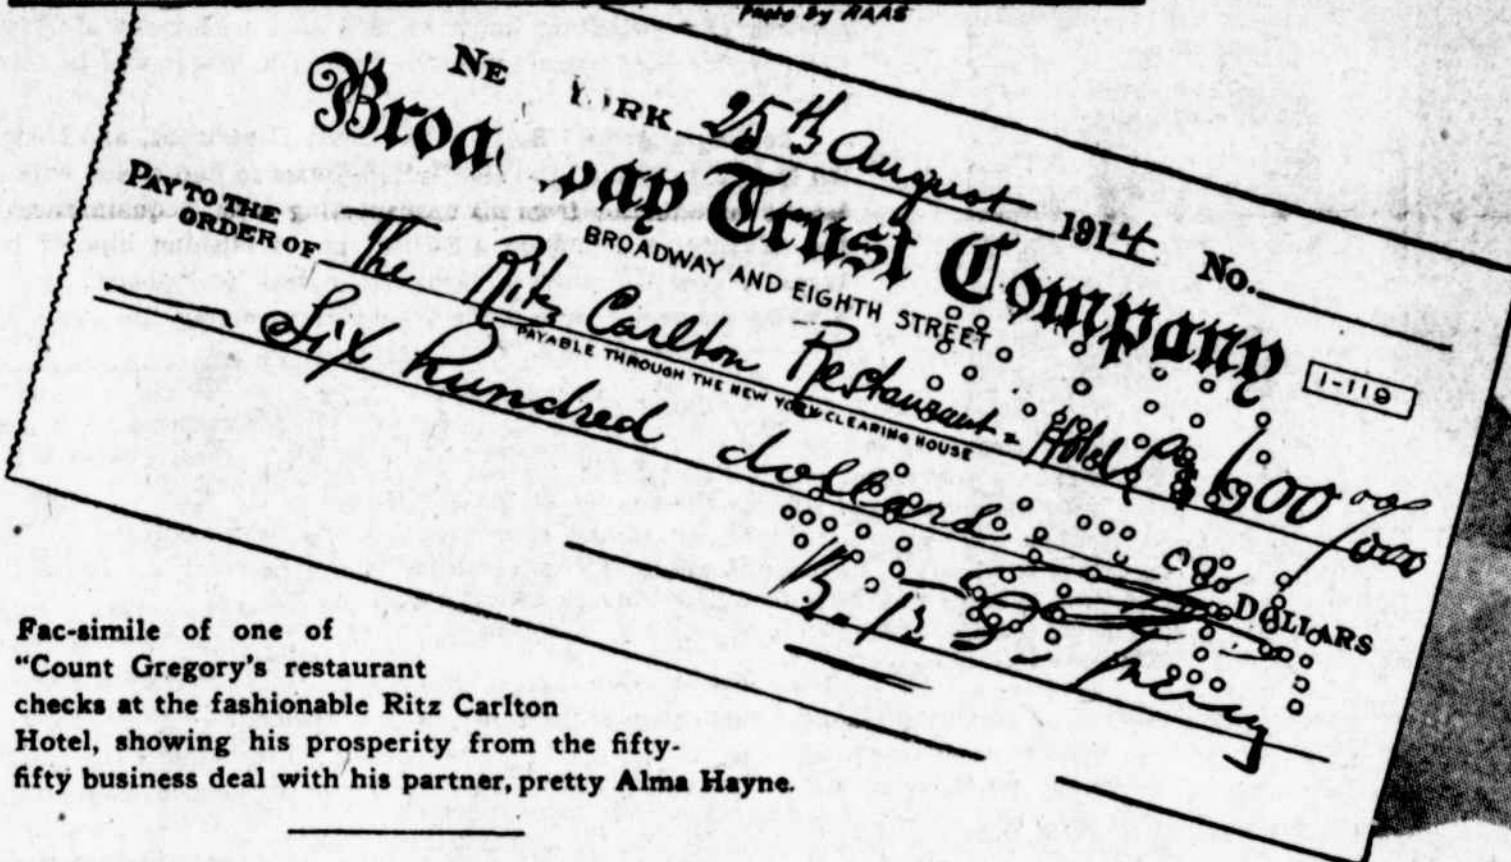 Photo by HAAS
NE YORK 25th August 1914 No.
Broadway Trust Company
BROADWAY AND EIGHTH STREET
1-119
PAY TO THE
ORDER OF The Ritz Carlton Restaurant - Hotel $ 600 00/000
PAYABLE THROUGH THE NEW YORK CLEARING HOUSE
Six Hundred dollars DOLLARS
Fac-simile of one of
"Count Gregory's restaurant
checks at the fashionable Ritz Carlton
Hotel, showing his prosperity from the fifty-
fifty business deal with his partner, pretty Alma Hayne.